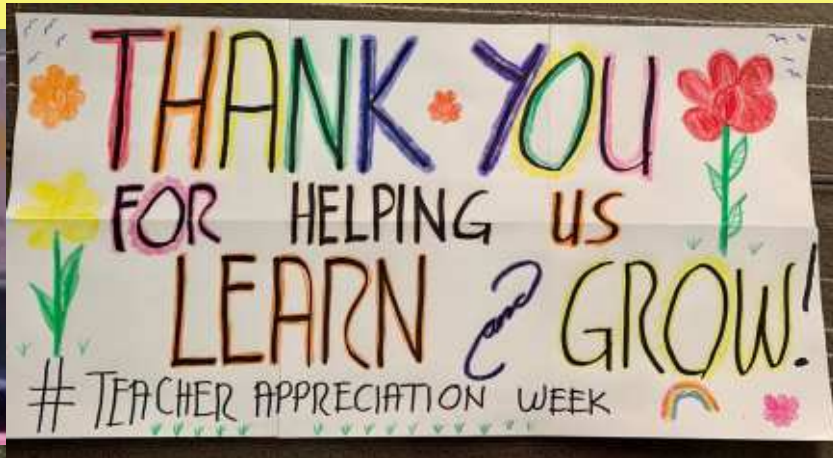 THANK YOU
FOR HELPING US
LEARN and GROW!
# TEACHER APPRECIATION WEEK